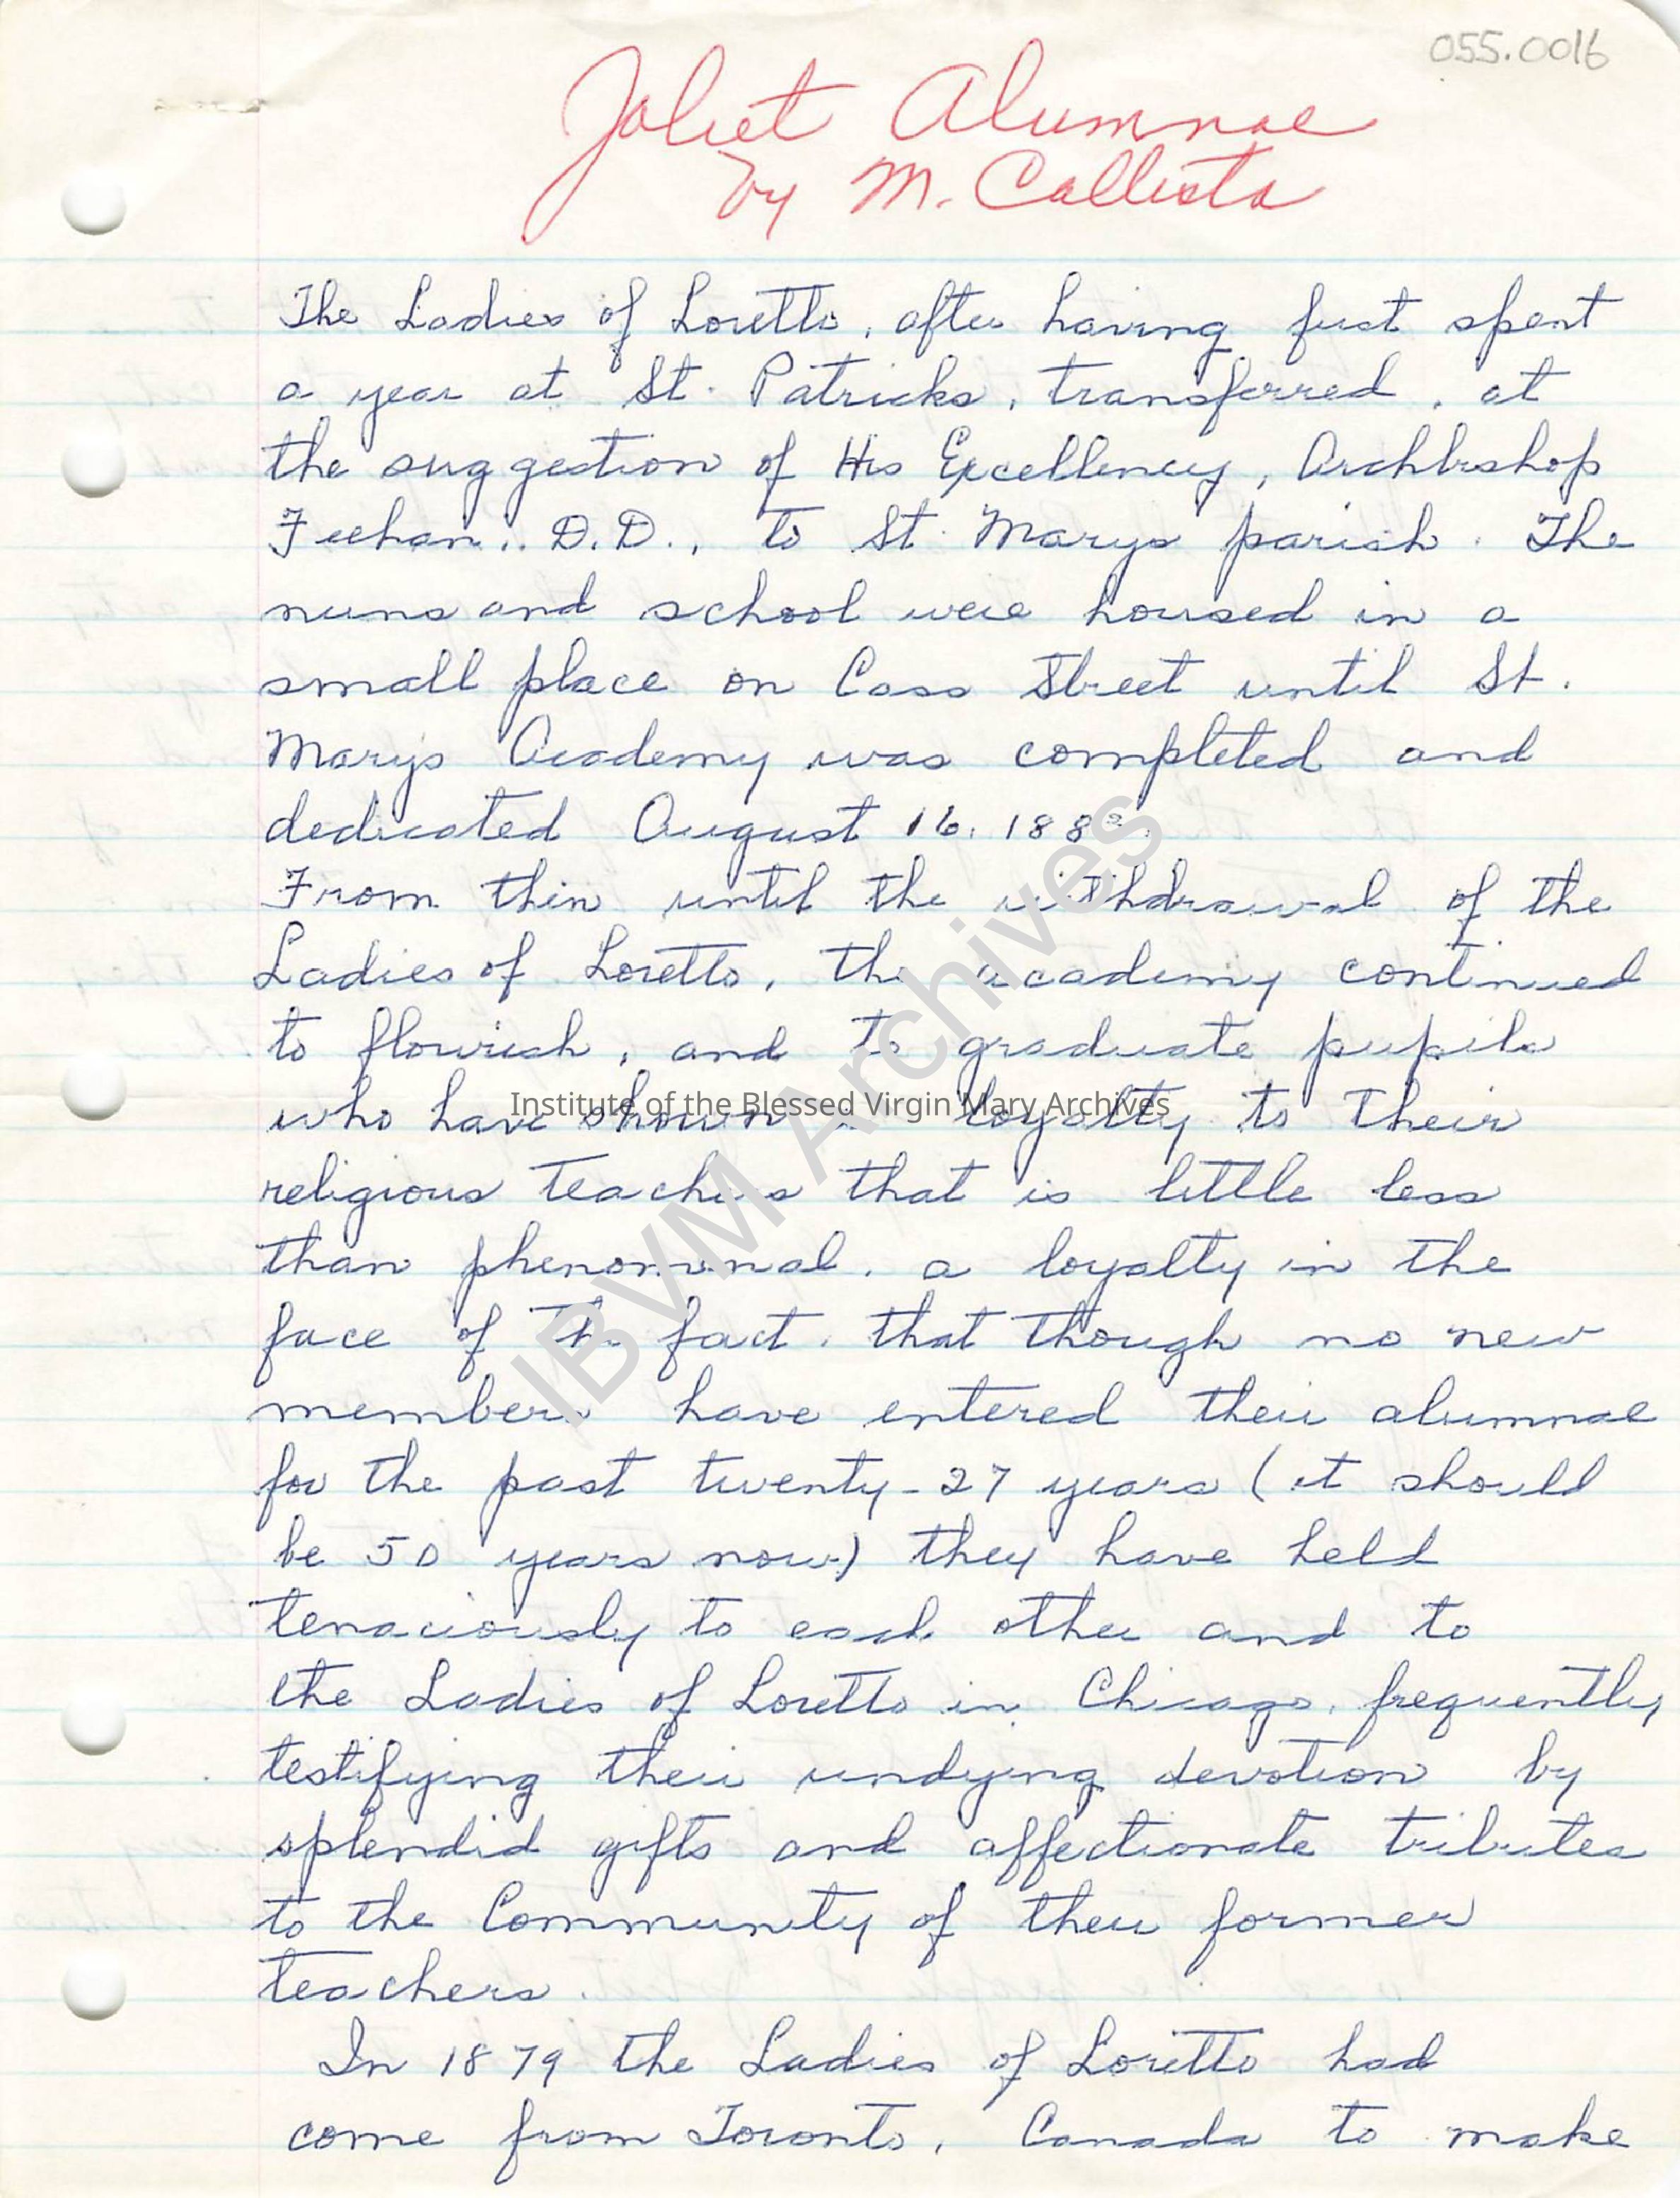 055.0016
Joliet Alumnae
by M. Callista
The Ladies of Loretto, after having first spent
a year at St. Patricks, transferred, at
the suggestion of His Excellency, Archbishop
Feehan,. D.D., to St. Marys parish. The
nuns and school were housed in a
small place on Cass Street until St.
Marys Academy was completed and
dedicated August 16, 188
From then until the withdrawal of the
Ladies of Loretto, the academy continued
to flourish, and to graduate pupils
who have shown a loyalty to their
Institute of the Blessed Virgin Mary Archives
IBVM Archives
religious teachers that is little less
than phenomenal, a loyalty in the
face of the fact, that though no new
members have entered their alumnae
for the past twenty-27 years (it should
be 50 years now) they have held
tenaciously to each other and to
the Ladies of Loretto in Chicago, frequently
testifying their undying devotion by
splendid gifts and affectionate tributes
to the Community of their former
teachers.
In 1879 the Ladies of Loretto had
come from Toronto, Canada to make